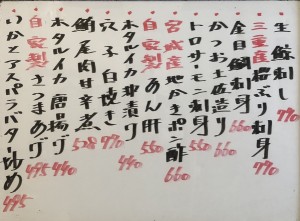 生鯨刺し 770
三重産 脂ぶり刺身 770
金目鯛刺身 660
かつお土佐造り 660
トロサーモン刺身 550
宮城産 地かきポン酢 660
自家製 あん肝 550
ホタルイカ沖漬け 440
穴子白焼き 770
鮪尾肉甘辛煮 528
ホタルイカ唐揚げ 440
自家製 さつまあげ 495
いかとアスパラバター炒め 495